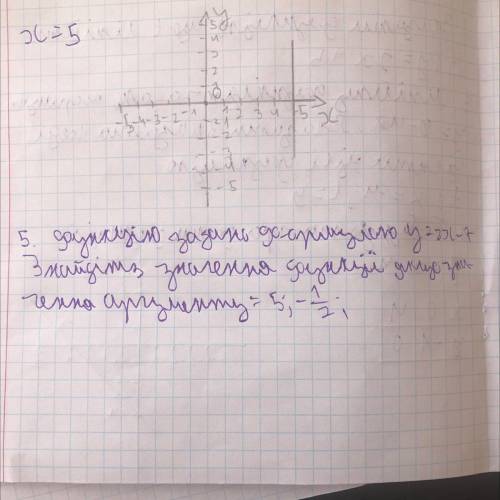 x=5
y
5
4
3
2
1
0
-5 -4 -3 -2 -1 1 2 3 4 5 x
-1
-2
-3
-4
-5
5. функцію задано формулою y=2x-7
Знайдіть значення функції якщо зна-
чення аргументу= 5; -1/2;